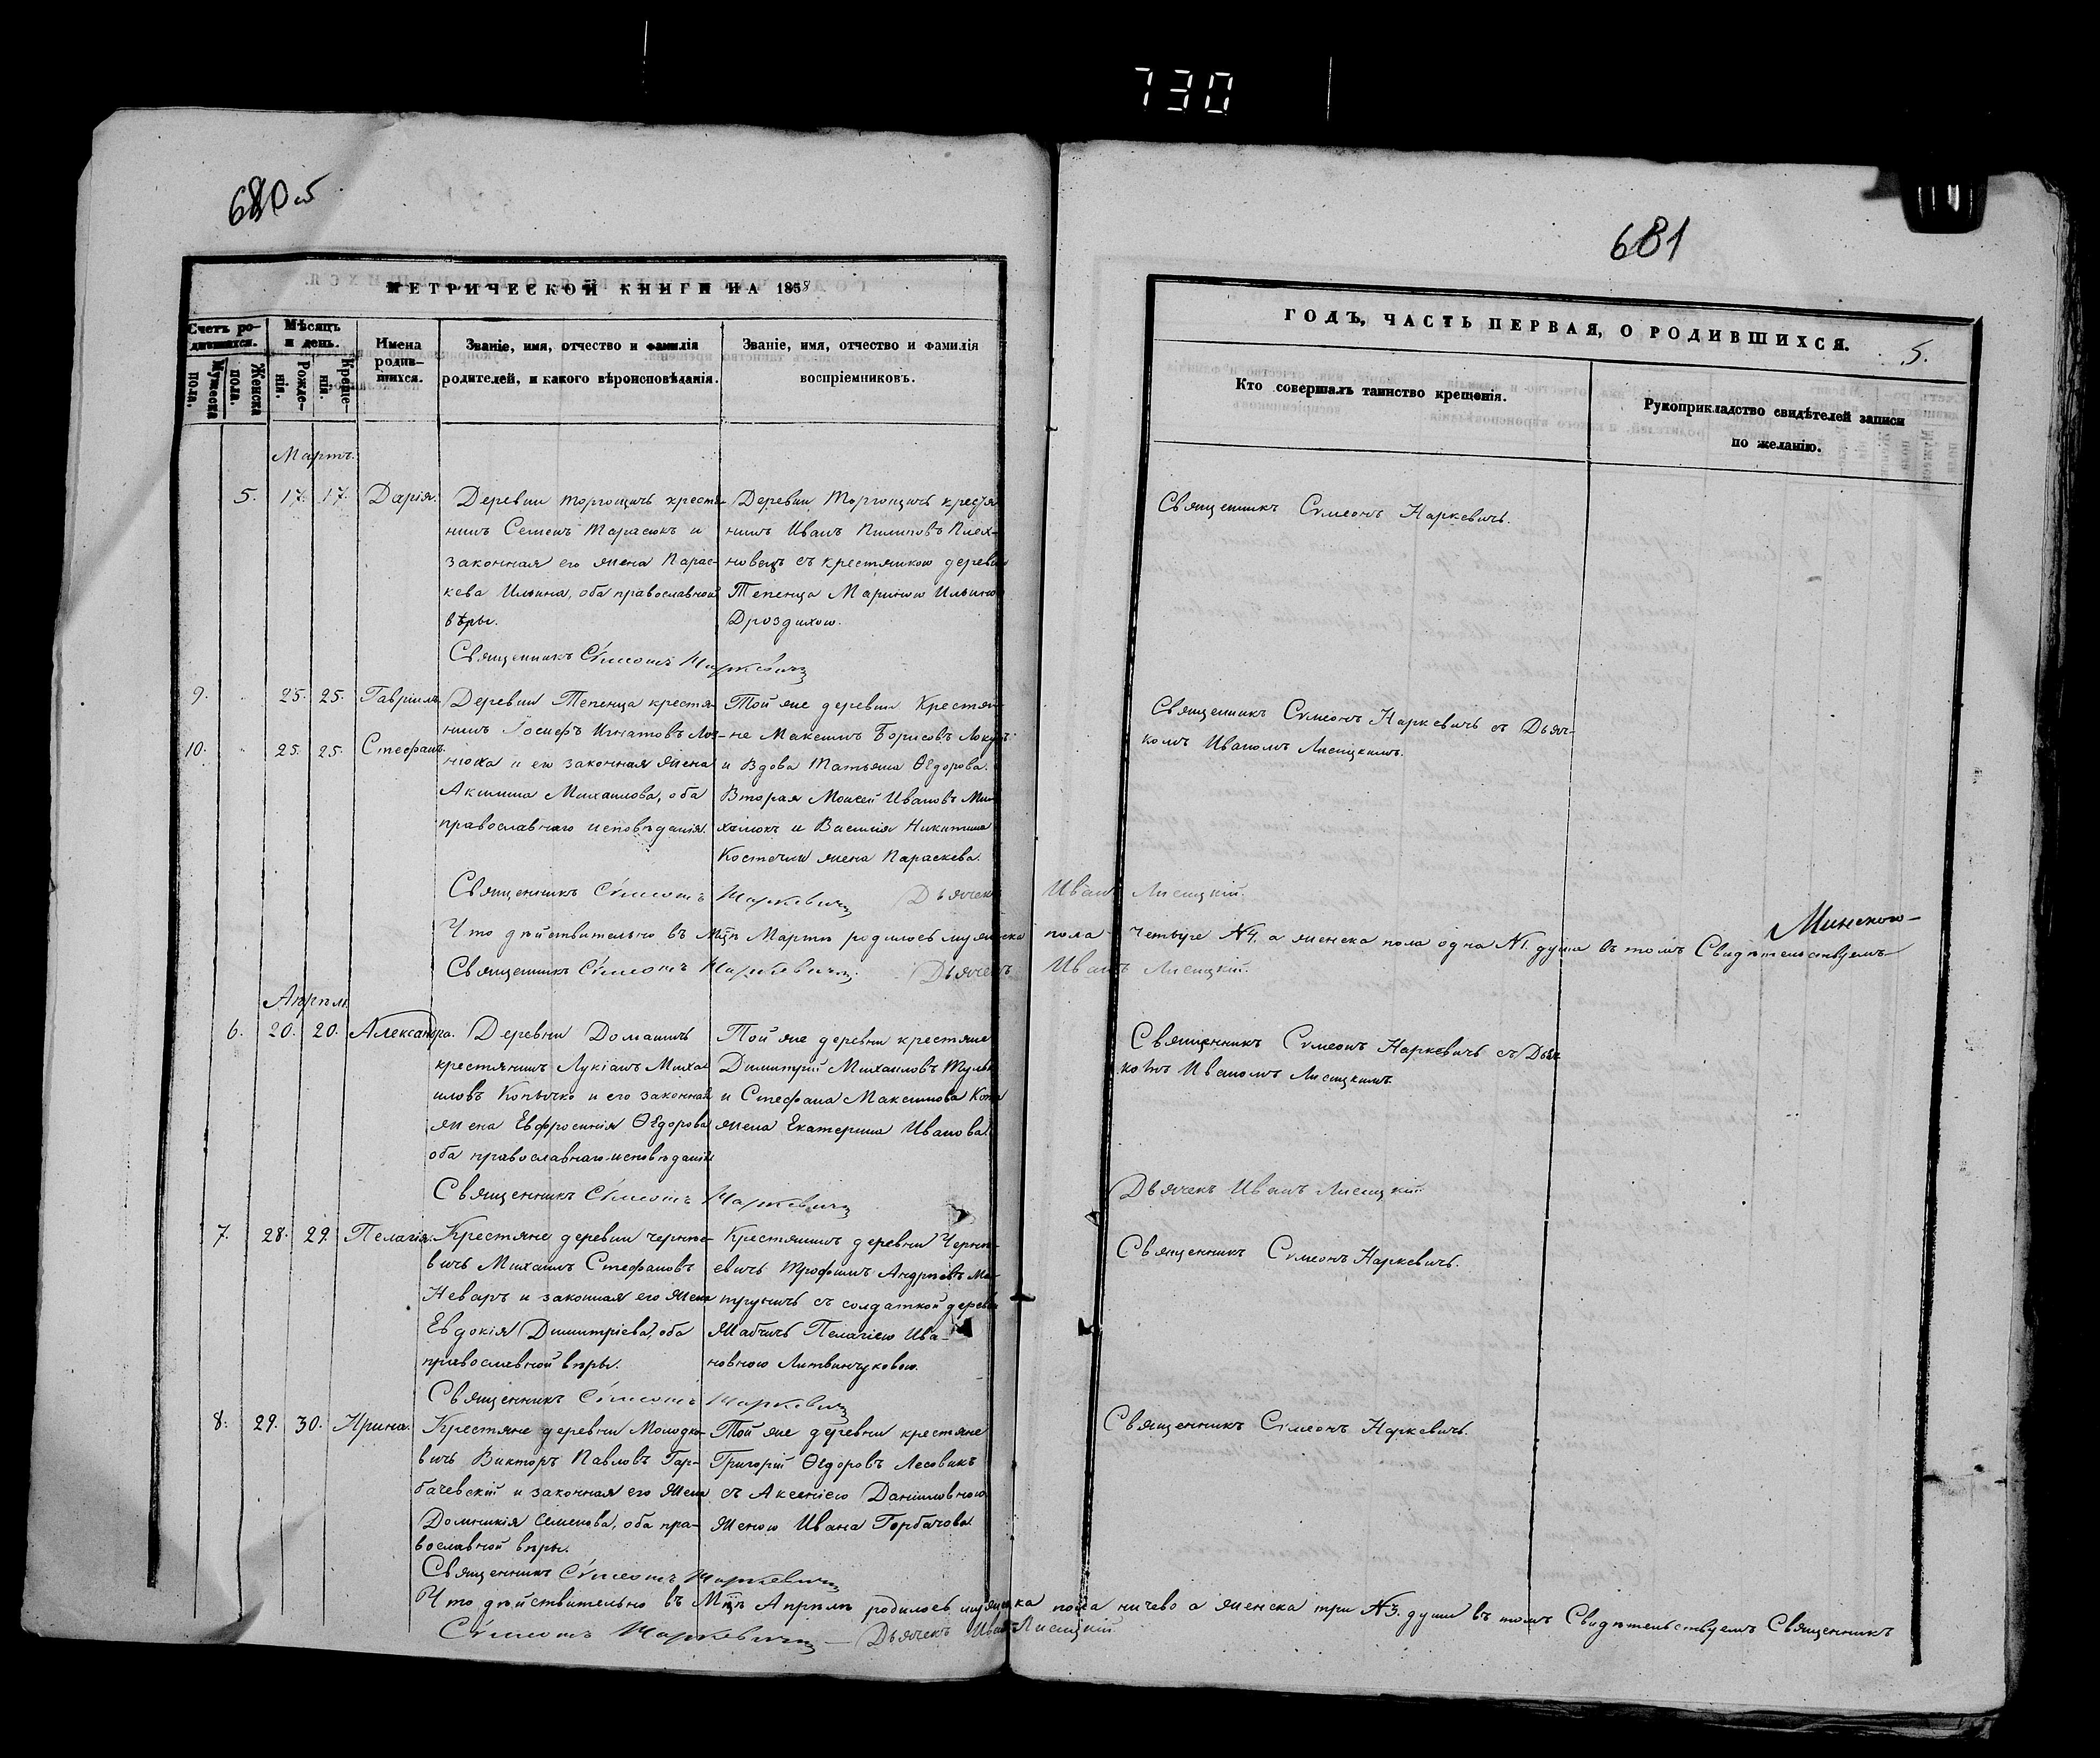 730
680 об
681
МЕТРИЧЕСКОЙ КНИГИ НА 1858
ГОДЪ, ЧАСТЬ ПЕРВАЯ, О РОДИВШИХСЯ.
5.
Счетъ родившихся.
Мужеска пола.
Женска пола.
Мѣсяцъ и день.
Рожденія.
Крещенія.
Имена родившихся.
Званіе, имя, отчество и фамилія
родителей, и какого вѣроисповѣданія.
Званіе, имя, отчество и фамилія
воспріемниковъ.
Кто совершалъ таинство крещенія.
Рукоприкладство свидѣтелей записи
по желанію.
Мартъ.
5. 17. 17. Дарія.
Деревни Торгощичь крестья-
нинъ Семенъ Тарасюкъ и
законная его жена Парас-
кева Ильина, оба православной
вѣры.
Деревни Торгощичь крестья
нинъ Иванъ Пилиповъ
новецъ съ крестянкою деревни
Тепенца Мариною Ильиною
Дроздихою.
Священникъ Сѵмеонъ Наркевичъ.
Священникъ Сѵмеонъ Наркевичъ
9. 25. 25. Гавріилъ
10. 25. 25. Стефанъ
Деревни Тепенца крестья
нинъ Іосифъ Игнатовъ
и его законная жена
Акилина Михаилова, оба
православнаго исповѣданія.
Той же деревни Крестья-
не Максимъ Борисовъ
и Вдова Татьяна Ѳедорова.
Вторая Моисей Ивановъ Ми-
халюкъ и Василія Никитина
жена Параскева.
Священникъ Сѵмеонъ Наркевичъ съ Дьяч-
комъ Иваномъ Лисицкимъ.
Священникъ Сѵмеонъ Наркевичъ Дьячекъ Иванъ Лисицкій.
Что дѣйствительно въ Мцѣ Мартѣ родилось мужеска пола четыре №4. а женска пола одна №1. душа въ томъ Свидѣтельствуемъ
Минскою
Священникъ Сѵмеонъ Наркевичъ. Дьячекъ Иванъ Лисицкій.
Апрѣль
6. 20. 20. Александра.
Деревни Домашичь
крестянинъ Лукіанъ Миха
иловъ Копычко и его законная
жена Евфросинія Ѳедорова
оба православнаго исповѣданія
Той же деревни крестяне
Димитрій Михаиловъ
и Стефана Максимова
жена Екатерина Иванова.
Священникъ Сѵмеонъ Наркевичъ съ Дьяч
комъ Иваномъ Лисицкимъ
Священникъ Сѵмеонъ Наркевичъ
Дьячекъ Иванъ Лисицкій
7. 28. 29. Пелагія.
Крестяне деревни Черніе-
вичь Михаилъ Стефановъ
Неваръ и законная его жена
Евдокія Димитріева, оба
православной вѣры.
Крестянинъ деревни Черні-
евичь Трофимъ Андреевъ
съ солдаткой деревни
Пелагіею Ива-
новною Литвинчуковою.
Священникъ Сѵмеонъ Наркевичъ.
Священникъ Сѵмеонъ Наркевичъ
8. 29. 30. Ирина.
Крестяне деревни Молодко-
вичь Викторъ Павловъ Гар-
бачевскій и законная его жена
Домникія Семенова, оба пра-
вославной вѣры.
Той же деревни крестяне
Григорій Ѳедоровъ Лесовикъ
съ Аксеніею Даниловною
женою Ивана Горбачова
Священникъ Сѵмеонъ Наркевичъ.
Священникъ Сѵмеонъ Наркевичъ
Что дѣйствительно въ Мцѣ Апрѣлѣ родилось мужеска пола ничево а женска три №3. души въ томъ Свидѣтельствуемъ Священникъ
Сѵмеонъ Наркевичъ — Дьячекъ Иванъ Лисицкій